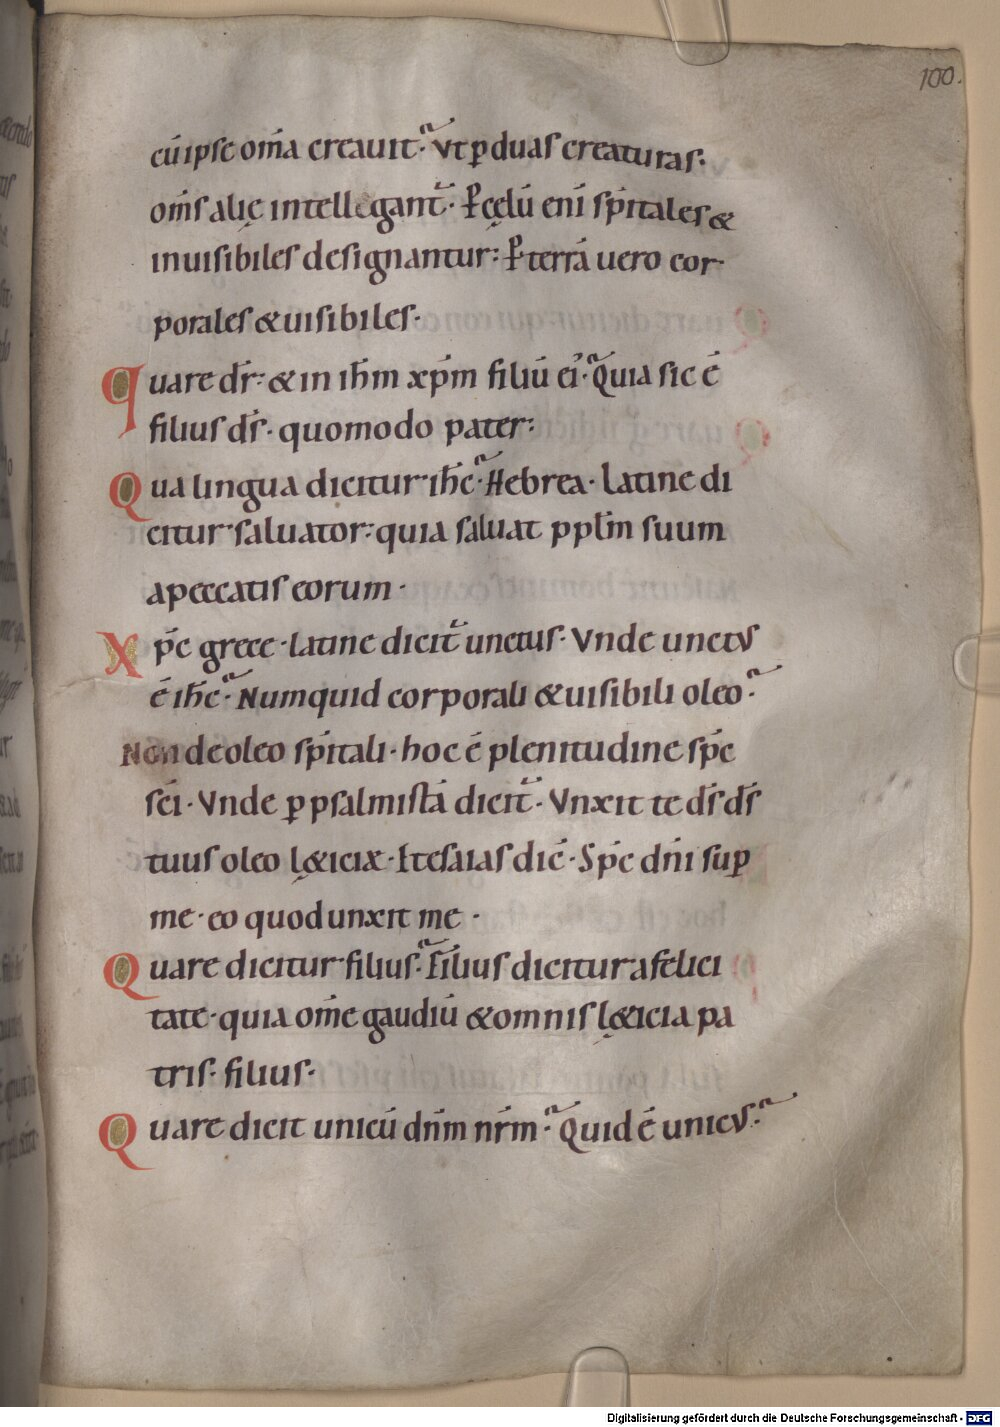 100.
cū ipse om̄a creauit· Vt ꝑ duas creaturas·
om̄s alię intellegant᷒· P̄ cęlū enī sp̄itales &
inuisibiles designantur· P̄ terrā uero cor
porales & uisibiles·
Quare dr̄· & in ih̄m xp̄m filiū ei᷒· Quia sic ē
filius dī̄s· quomodo pater·
Qua lingua dicitur ih̄c· Hebrea· Latine di
citur saluator· quia saluat ppl̄m suum
a peccatis eorum·
Xp̄c grece· latine dicit᷒ unctus· Vnde unctus
ē ih̄c· Numquid corporali & uisibili oleo·
Non de oleo sp̄itali· hoc ē plenitudine sp̄c
sc̄i· Vnde ꝑ psalmistā dicit᷒· Vnxit te d̄s d̄s
tuus oleo l&iciæ· It esaias dic̄· Sp̄c dn̄i suꝑ
me· eo quod unxit me·
Quare dicitur filius· Filius dicitur a felici
tate· quia om̄e gaudiū & omnis l&icia pa
tris· filius·
Quare dicit unicū dn̄m nr̄m· Quid ē unicus·
Digitalisierung gefördert durch die Deutsche Forschungsgemeinschaft - DFG